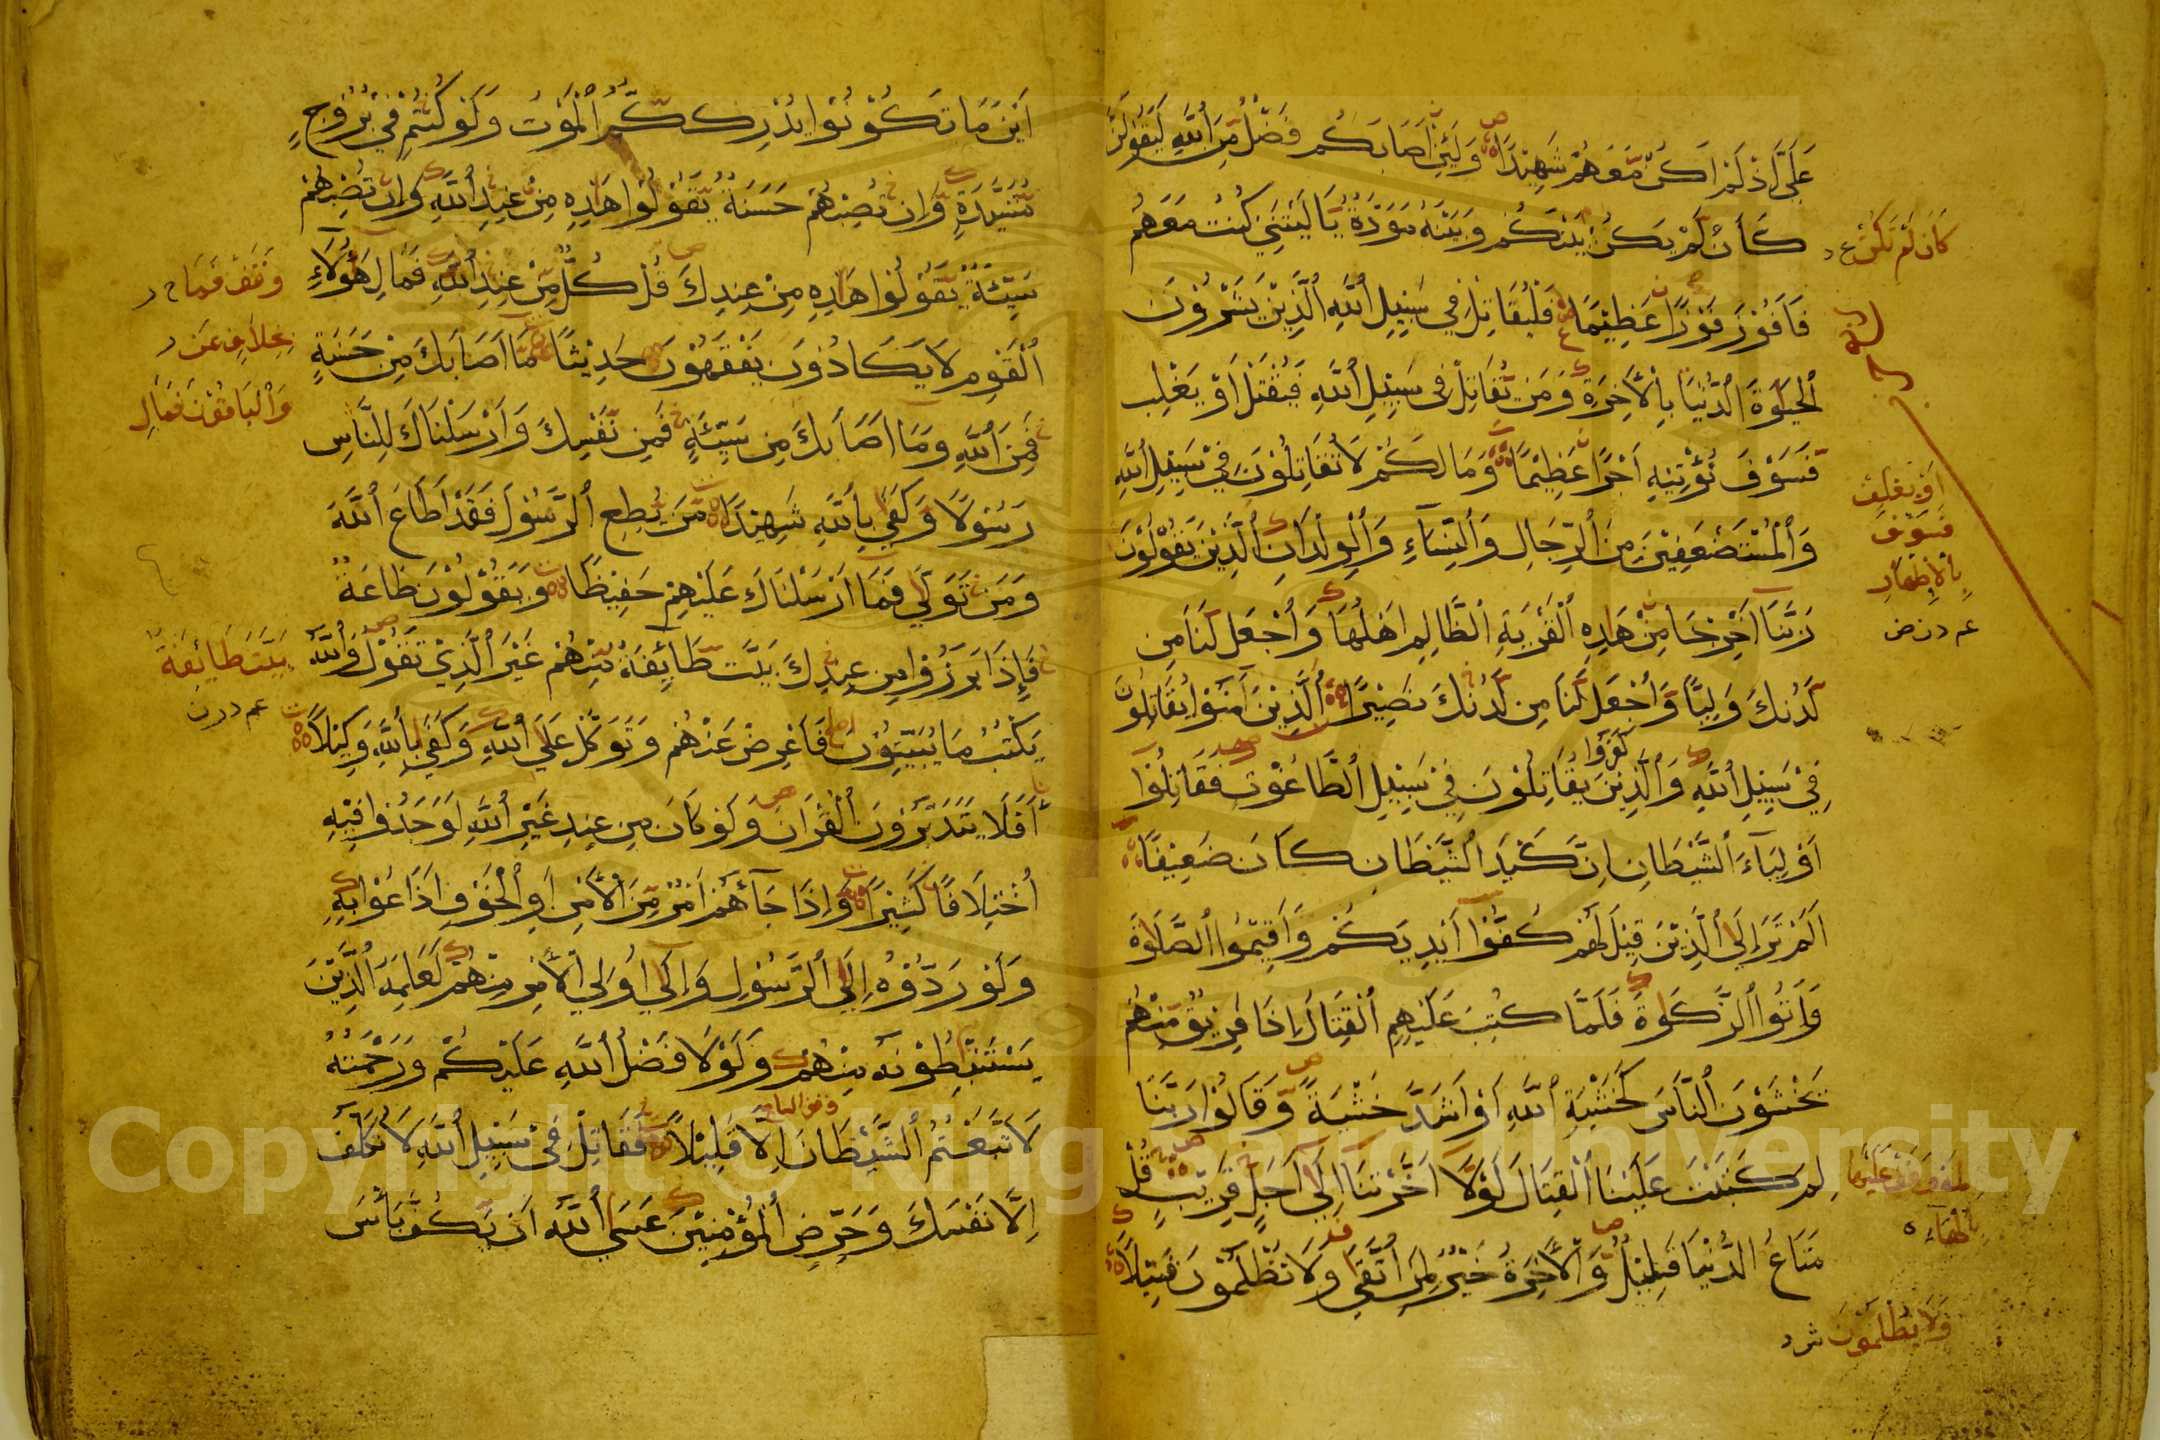 عَلَيَّ اِذْ لَمْ اَكُنْ مَّعَهُمْ شَهِيْدًا وَلَئِنْ اَصَابَكُمْ فَضْلٌ مِّنَ ٱللَّهِ لَيَقُوْلَنَّ
كَأَنْ لَمْ يَكُنْ بَيْنَكُمْ وَبَيْنَهُ مَوَدَّةٌ يَّا لَيْتَنِي كُنْتُ مَعَهُمْ
كَأَن لَّمْ تَكُنْ
فَاَفُوْزَ فَوْزًا عَظِيْمًا فَلْيُقَاتِلْ فِي سَبِيْلِ ٱللَّهِ ٱلَّذِيْنَ يَشْرُوْنَ
ٱلْحَيَوٰةَ ٱلدُّنْيَا بِٱلْاٰخِرَةِ وَمَنْ يُّقَاتِلْ فِي سَبِيْلِ ٱللَّهِ فَيُقْتَلْ اَوْ يَغْلِبْ
فَسَوْفَ نُؤْتِيْهِ اَجْرًا عَظِيْمًا وَمَا لَكُمْ لَا تُقَاتِلُوْنَ فِيْ سَبِيْلِ ٱللَّهِ
اَوْ يَغْلِبْ
فَسَوْفَ
بِٱلْاِظْهَارِ
وَٱلْمُسْتَضْعَفِيْنَ مِنَ ٱلرِّجَالِ وَٱلنِّسَآءِ وَٱلْوِلْدَانِ ٱلَّذِيْنَ يَقُوْلُوْنَ
رَبَّنَا اَخْرِجْنَا مِنْ هَٰذِهِ ٱلْقَرْيَةِ ٱلظَّالِمِ اَهْلُهَا وَٱجْعَل لَّنَا مِن
لَّدُنكَ وَلِيًّا وَٱجْعَل لَّنَا مِن لَّدُنكَ نَصِيْرًا ٱلَّذِيْنَ اٰمَنُوْا يُقَاتِلُوْنَ
كَفَرُوْا
فِيْ سَبِيْلِ ٱللَّهِ وَٱلَّذِيْنَ يُقَاتِلُوْنَ فِيْ سَبِيْلِ ٱلطَّاغُوْتِ فَقَاتِلُوْا
اَوْلِيَآءَ ٱلشَّيْطَانِ اِنَّ كَيْدَ ٱلشَّيْطَانِ كَانَ ضَعِيْفًا
اَلَمْ تَرَ اِلَى ٱلَّذِيْنَ قِيْلَ لَهُمْ كُفُّوْا اَيْدِيَكُمْ وَاَقِيْمُوا ٱلصَّلَاوةَ
وَاٰتُوا ٱلزَّكَاوةَ فَلَمَّا كُتِبَ عَلَيْهِمُ ٱلْقِتَالُ اِذَا فَرِيْقٌ مِّنْهُمْ
يَخْشَوْنَ ٱلنَّاسَ كَخَشْيَةِ ٱللَّهِ اَوْ اَشَدَّ خَشْيَةً وَّقَالُوْا رَبَّنَا
لِمَ كَتَبْتَ عَلَيْنَا ٱلْقِتَالَ لَوْلَا اَخَّرْتَنَا اِلَى اَجَلٍ قَرِيْبٍ قُلْ
مَتَاعُ ٱلدُّنْيَا قَلِيْلٌ وَّٱلْاٰخِرَةُ خَيْرٌ لِّمَنِ ٱتَّقَى وَلَا تُظْلَمُوْنَ فَتِيْلًا
وَلَا يُظْلَمُوْنَ
اَيْنَ مَا تَكُوْنُوْا يُدْرِكْكُّمُ ٱلْمَوْتُ وَلَوْ كُنْتُمْ فِيْ بُرُوْجٍ
مُّشَيَّدَةٍ وَّاِنْ تُصِبْهُمْ حَسَنَةٌ يَّقُوْلُوْا هَٰذِهِ مِنْ عِنْدِ ٱللَّهِ وَاِنْ تُصِبْهُمْ
سَيِّئَةٌ يَّقُوْلُوْا هَٰذِهِ مِنْ عِنْدِكَ قُلْ كُلٌّ مِّنْ عِنْدِ ٱللَّهِ فَمَالِ هَٰؤُلَآءِ
وَقَفَ فَمَا
بِخِلَافٍ عَنْ
وَٱلْبَاقُوْنَ فَمَالِ
ٱلْقَوْمِ لَا يَكَادُوْنَ يَفْقَهُوْنَ حَدِيْثًا مَّا اَصَابَكَ مِنْ حَسَنَةٍ
فَمِنَ ٱللَّهِ وَمَا اَصَابَكَ مِن سَيِّئَةٍ فَمِن نَّفْسِكَ وَاَرْسَلْنَاكَ لِلنَّاسِ
رَسُوْلًا وَّكَفَى بِٱللَّهِ شَهِيْدًا مَّن يُّطِعِ ٱلرَّسُوْلَ فَقَدْ اَطَاعَ ٱللَّهَ
وَمَن تَوَلَّى فَمَا اَرْسَلْنَاكَ عَلَيْهِمْ حَفِيْظًا وَيَقُوْلُوْنَ طَاعَةٌ
فَاِذَا بَرَزُوْا مِنْ عِنْدِكَ بَيَّتَ طَّآئِفَةٌ مِّنْهُمْ غَيْرَ ٱلَّذِيْ تَقُوْلُ وَٱللَّهُ
بَيَّتَ طَائِفَةٌ
يَكْتُبُ مَا يُبَيِّتُوْنَ فَاَعْرِضْ عَنْهُمْ وَتَوَكَّلْ عَلَى ٱللَّهِ وَكَفَى بِٱللَّهِ وَكِيْلًا
اَفَلَا يَتَدَبَّرُوْنَ ٱلْقُرْاٰنَ وَلَوْ كَانَ مِنْ عِنْدِ غَيْرِ ٱللَّهِ لَوَجَدُوْا فِيْهِ
ٱخْتِلَافًا كَثِيْرًا وَاِذَا جَآءَهُمْ اَمْرٌ مِّنَ ٱلْاَمْنِ اَوِ ٱلْخَوْفِ اَذَاعُوْا بِهِ
وَلَوْ رَدُّوْهُ اِلَى ٱلرَّسُوْلِ وَاِلَى اُولِي ٱلْاَمْرِ مِنْهُمْ لَعَلِمَهُ ٱلَّذِيْنَ
يَسْتَنْبِطُوْنَهُ مِنْهُمْ وَلَوْلَا فَضْلُ ٱللَّهِ عَلَيْكُمْ وَرَحْمَتُهُ
لَاتَّبَعْتُمُ ٱلشَّيْطَانَ اِلَّا قَلِيْلًا فَقَاتِلْ فِيْ سَبِيْلِ ٱللَّهِ لَا تُكَلَّفُ
اِلَّا نَفْسَكَ وَحَرِّضِ ٱلْمُؤْمِنِيْنَ عَسَى ٱللَّهُ اَن يَّكُفَّ بَأْسَ
Copyright © King Saud University